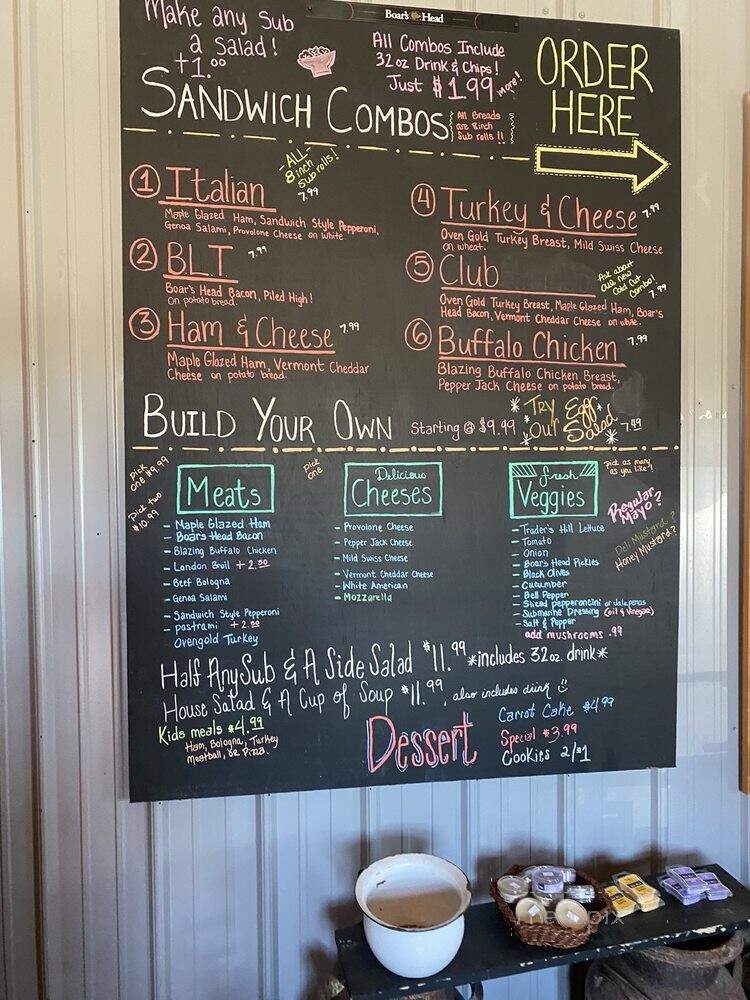 Boar's Head
Make any Sub
a salad!
+1.00
All Combos Include
32oz Drink & Chips!
Just $1.99 more!
ORDER
HERE
SANDWICH COMBOS
All Breads
are 8inch
Sub rolls!!
-ALL-
8inch
Sub rolls!
1 Italian 7.99
Maple Glazed Ham, Sandwich Style Pepperoni,
Genoa Salami, Provolone Cheese on white.
2 BLT 7.99
Boar's Head Bacon, Piled High!
on potato bread.
3 Ham & Cheese 7.99
Maple Glazed Ham, Vermont Cheddar
Cheese on potato bread.
4 Turkey & Cheese 7.99
Oven Gold Turkey Breast, Mild Swiss Cheese
on wheat.
5 Club 7.99
Ask about
our new
Cold Cut
Combo!
Oven Gold Turkey Breast, Maple Glazed Ham, Boar's
Head Bacon, Vermont Cheddar Cheese on white.
6 Buffalo Chicken 7.99
Blazing Buffalo Chicken Breast,
Pepper Jack Cheese on potato bread.
BUILD YOUR OWN Starting @ $9.99
Try Egg
our Salad 7.49
Pick
one $9.99
Pick two
$10.99
Meats
- Maple Glazed Ham
- Boar's Head Bacon
- Blazing Buffalo Chicken
- London Broil +2.50
- Beef Bologna
- Genoa Salami
- Sandwich Style Pepperoni
- pastrami +2.00
Ovengold Turkey
pick
one
Delicious
Cheeses
- Provolone Cheese
- Pepper Jack Cheese
- Mild Swiss Cheese
- Vermont Cheddar Cheese
- White American
- Mozzarella
fresh
Veggies
pick as many
as you like!
- Trader's Hill Lettuce
- Tomato
- Onion
- Boar's Head Pickles
- Black Olives
- Cucumber
- Bell Pepper
- Sliced pepperoncini or Jalapenos
- Submarine Dressing (oil & Vinegar)
- Salt & Pepper
add mushrooms .99
Regular
Mayo?
Deli Mustard?
Honey Mustard?
Half Any Sub & A Side Salad $11.99 *includes 32oz. drink*
House Salad & A Cup of Soup $11.99, also includes drink
Kids meals $4.99
Ham, Bologna, Turkey
Meatball, or Pizza.
Dessert
Carrot Cake $4.99
Special $3.99
Cookies 2/$1